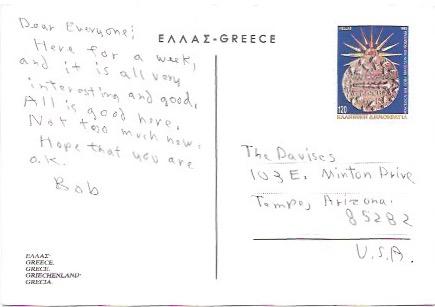 Dear Everyone;
Here for a week,
and it is all very
interesting and good.
All is good here.
Not too much now.
Hope that you are
O.K.
Bob
ΕΛΛΑΣ-GREECE
ΕΛΛΑΣ
120
ΕΛΛΗΝΙΚΗ ΔΗΜΟΚΡΑΤΙΑ
The Davises
103 E. Minton Drive
Tempe, Arizona.
85282
U.S.A.
ΕΛΛΑΣ-
GREECE.
GRECE.
GRIECHENLAND-
GRECIA.